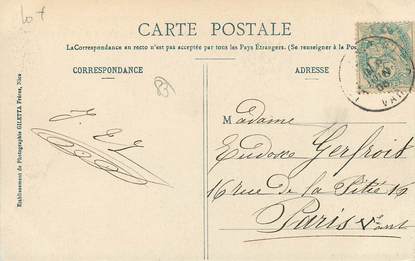 CARTE POSTALE
La Correspondance au recto n'est pas acceptée par tous les Pays Étrangers. (Se renseigner à la Pos
CORRESPONDANCE
ADRESSE
Etablissement de Photographie GILETTA Frères, Nice
83
Madame
Eudoxe Gerfroit
16 rue de la Pitié 16
Paris
VAR